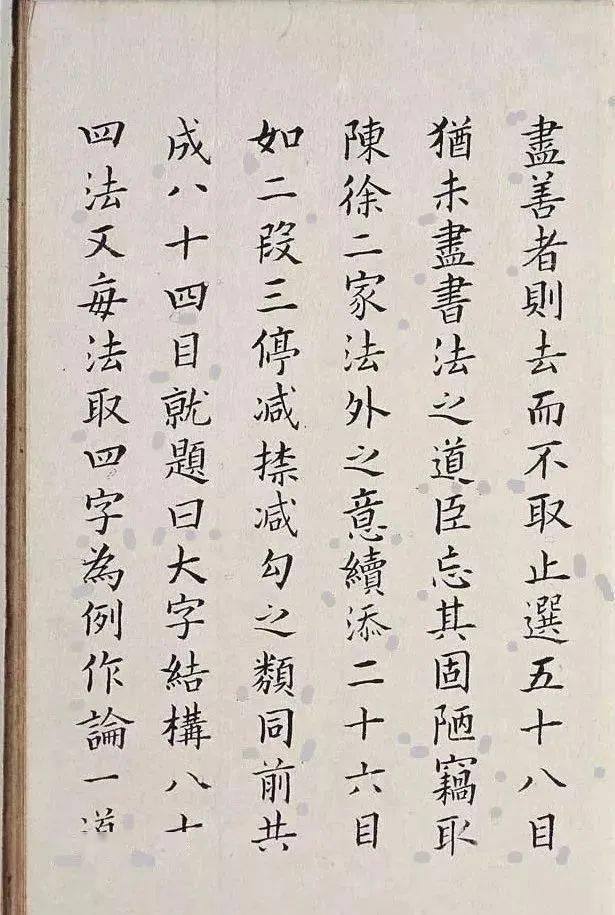 盡善者則去而不取止選五十八目
猶未盡書法之道臣忘其固陋竊取
陳徐二家法外之意續添二十六目
如二段三停减捺减勾之類同前共
成八十四目就題曰大字結構八十
四法又每法取四字為例作論一道